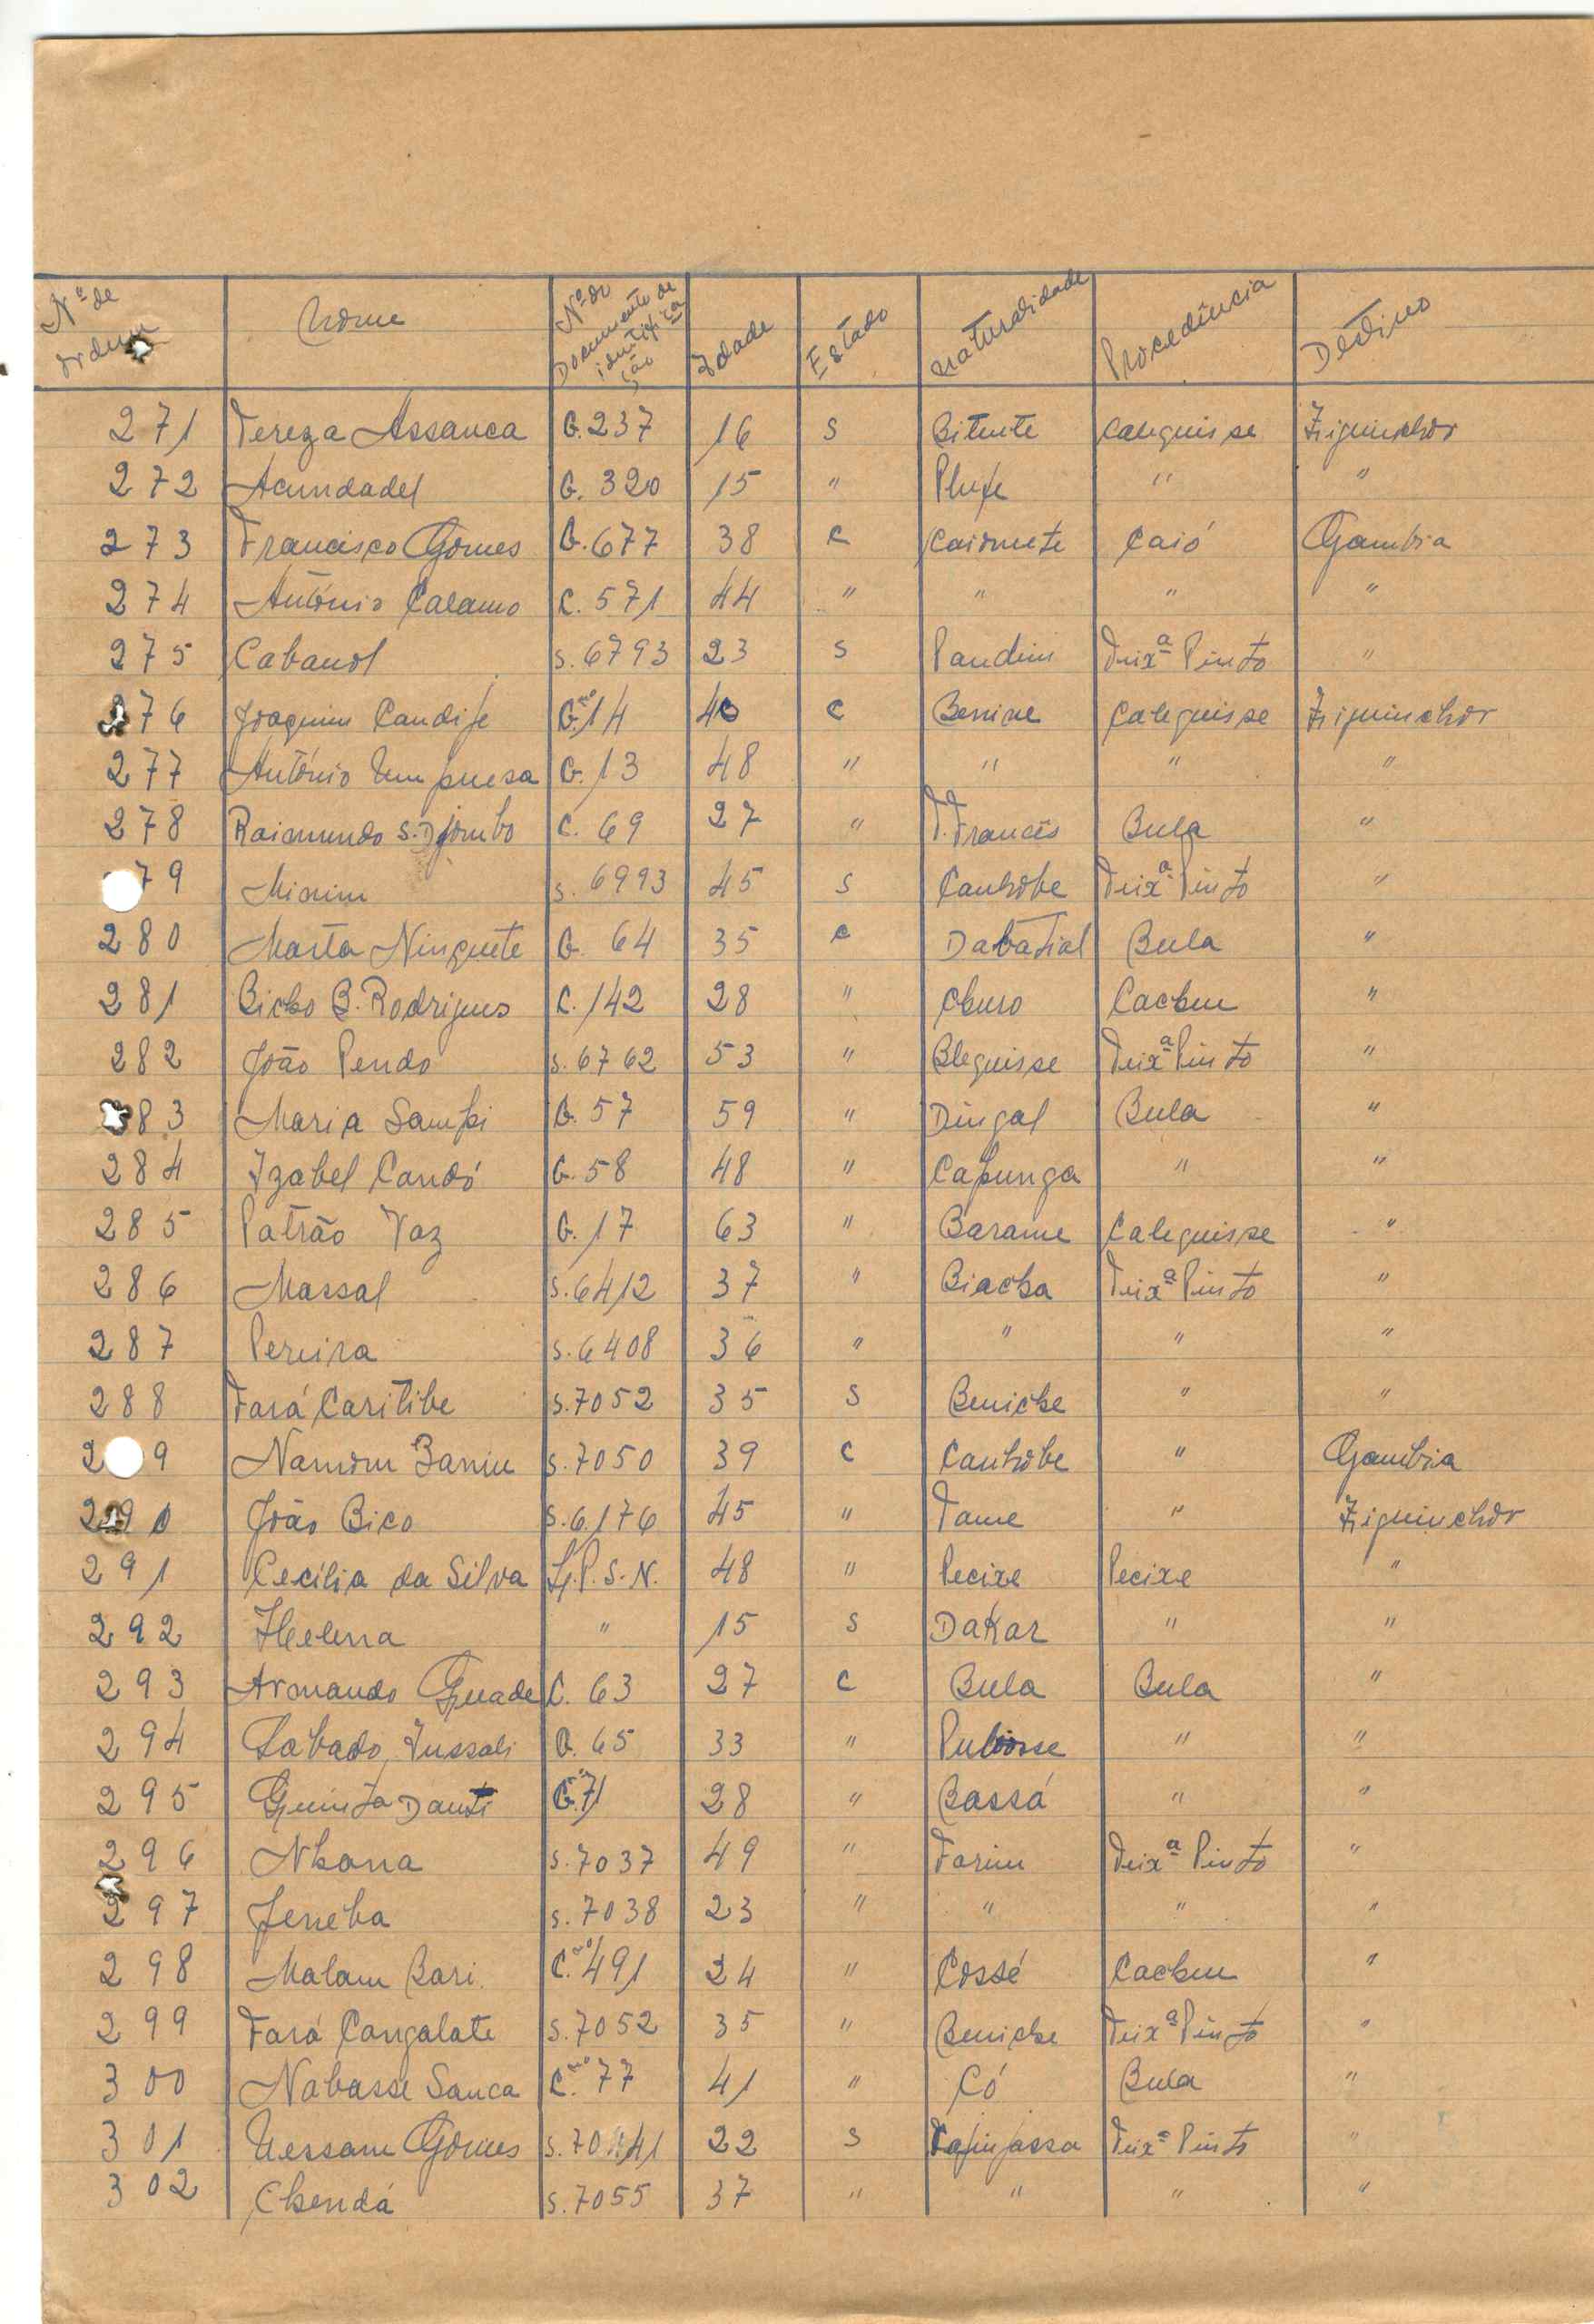 Nº de ordem Nome Nº do Documento de identificação Idade Estado Naturalidade Procedência Destino
271 Tereza Assanca G. 237 16 S Bitente Caleguisse Ziguinchor
272 Acundadel G. 320 15 " Plufe " "
273 Francisco Gomes G. 677 38 C Caiomete Caió Gambia
274 António Calamo C. 571 44 " " " "
275 Cabanol S. 6793 23 S Pandim Teixª Pinto "
276 Joaquim Candife G. nº 14 40 C Benine Caleguisse Ziguinchor
277 António Umpuesa G. 13 48 " " " "
278 Raimundo S. Djombo C. 69 27 " T. Francês Bula "
79 Minim S. 6993 45 S Canhobe Teixª Pinto "
280 Marta Ninguete G. 64 35 C Dabatial Bula "
281 Bicho B. Rodrigues C. 142 28 " Churo Cacheu "
282 João Pendo S. 6762 53 " Bleguisse Teixª Pinto "
283 Maria Sampi G. 57 59 " Dingal Bula "
284 Izabel Candó G. 58 48 " Capunga " "
285 Patrão Vaz G. 17 63 " Barame Caleguisse "
286 Massal S. 6412 37 " Biacha Teixª Pinto "
287 Pereira S. 6408 36 " " " "
288 Fará Caritibe S. 7052 35 S Beniche " "
2 9 Namom Banin S. 7050 39 C Canhobe " Gambia
290 João Bico S. 6.176 45 " Tame " Ziguinchor
291 Cecília da Silva G.P.S.N. 48 " Pecixe Pecixe "
292 Helena " 15 S Dakar " "
293 Armando Guade C. 63 27 C Bula Bula "
294 Sabado Jussali G. 65 33 " " "
295 Guinta Danti G. nº 71 28 " Bassá " "
296 Nhana S. 7037 49 " Farim Teixª Pinto "
297 Jeneba S. 7038 23 " " " "
298 Malam Bari C. nº 491 24 " Cossé Cacheu "
299 Fará Cangalate S. 7052 35 " Beniche Teixª Pinto "
300 Nabasse Sanca C. nº 77 41 " Có Bula "
301 Uessam Gomes 22 S Teixª Pinto "
302 Chendá S. 7055 37 " " " "